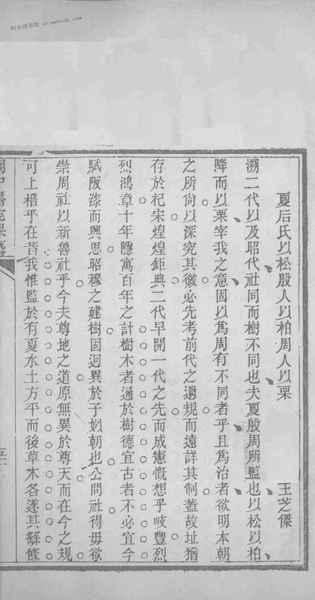 夏后氏以松殷人以柏周人以栗
王芝傑
溯二代以及昭代社同而樹不同也夫夏殷周所監也以松以柏
降而以栗宰我之意固以爲周有不同者乎且爲治者欲明本朝
之所尙以深究其微必先考前代之遺規而遠詳其制蓋故址猶
存於杞宋煌煌鉅典二代早開一代之先而成憲慨想乎岐豐烈
烈鴻章十年隱寓百年之計樹木者通於樹德宜古者不必宜今
賦阪漆而興思昭稼之建樹固迥異於子姒朝也公問社得毋欲
崇周社以新魯社乎今夫尊地之道原無異於尊天而在今之規
可上稽乎在昔我惟監於有夏水土方平而後草木各遂其蘇